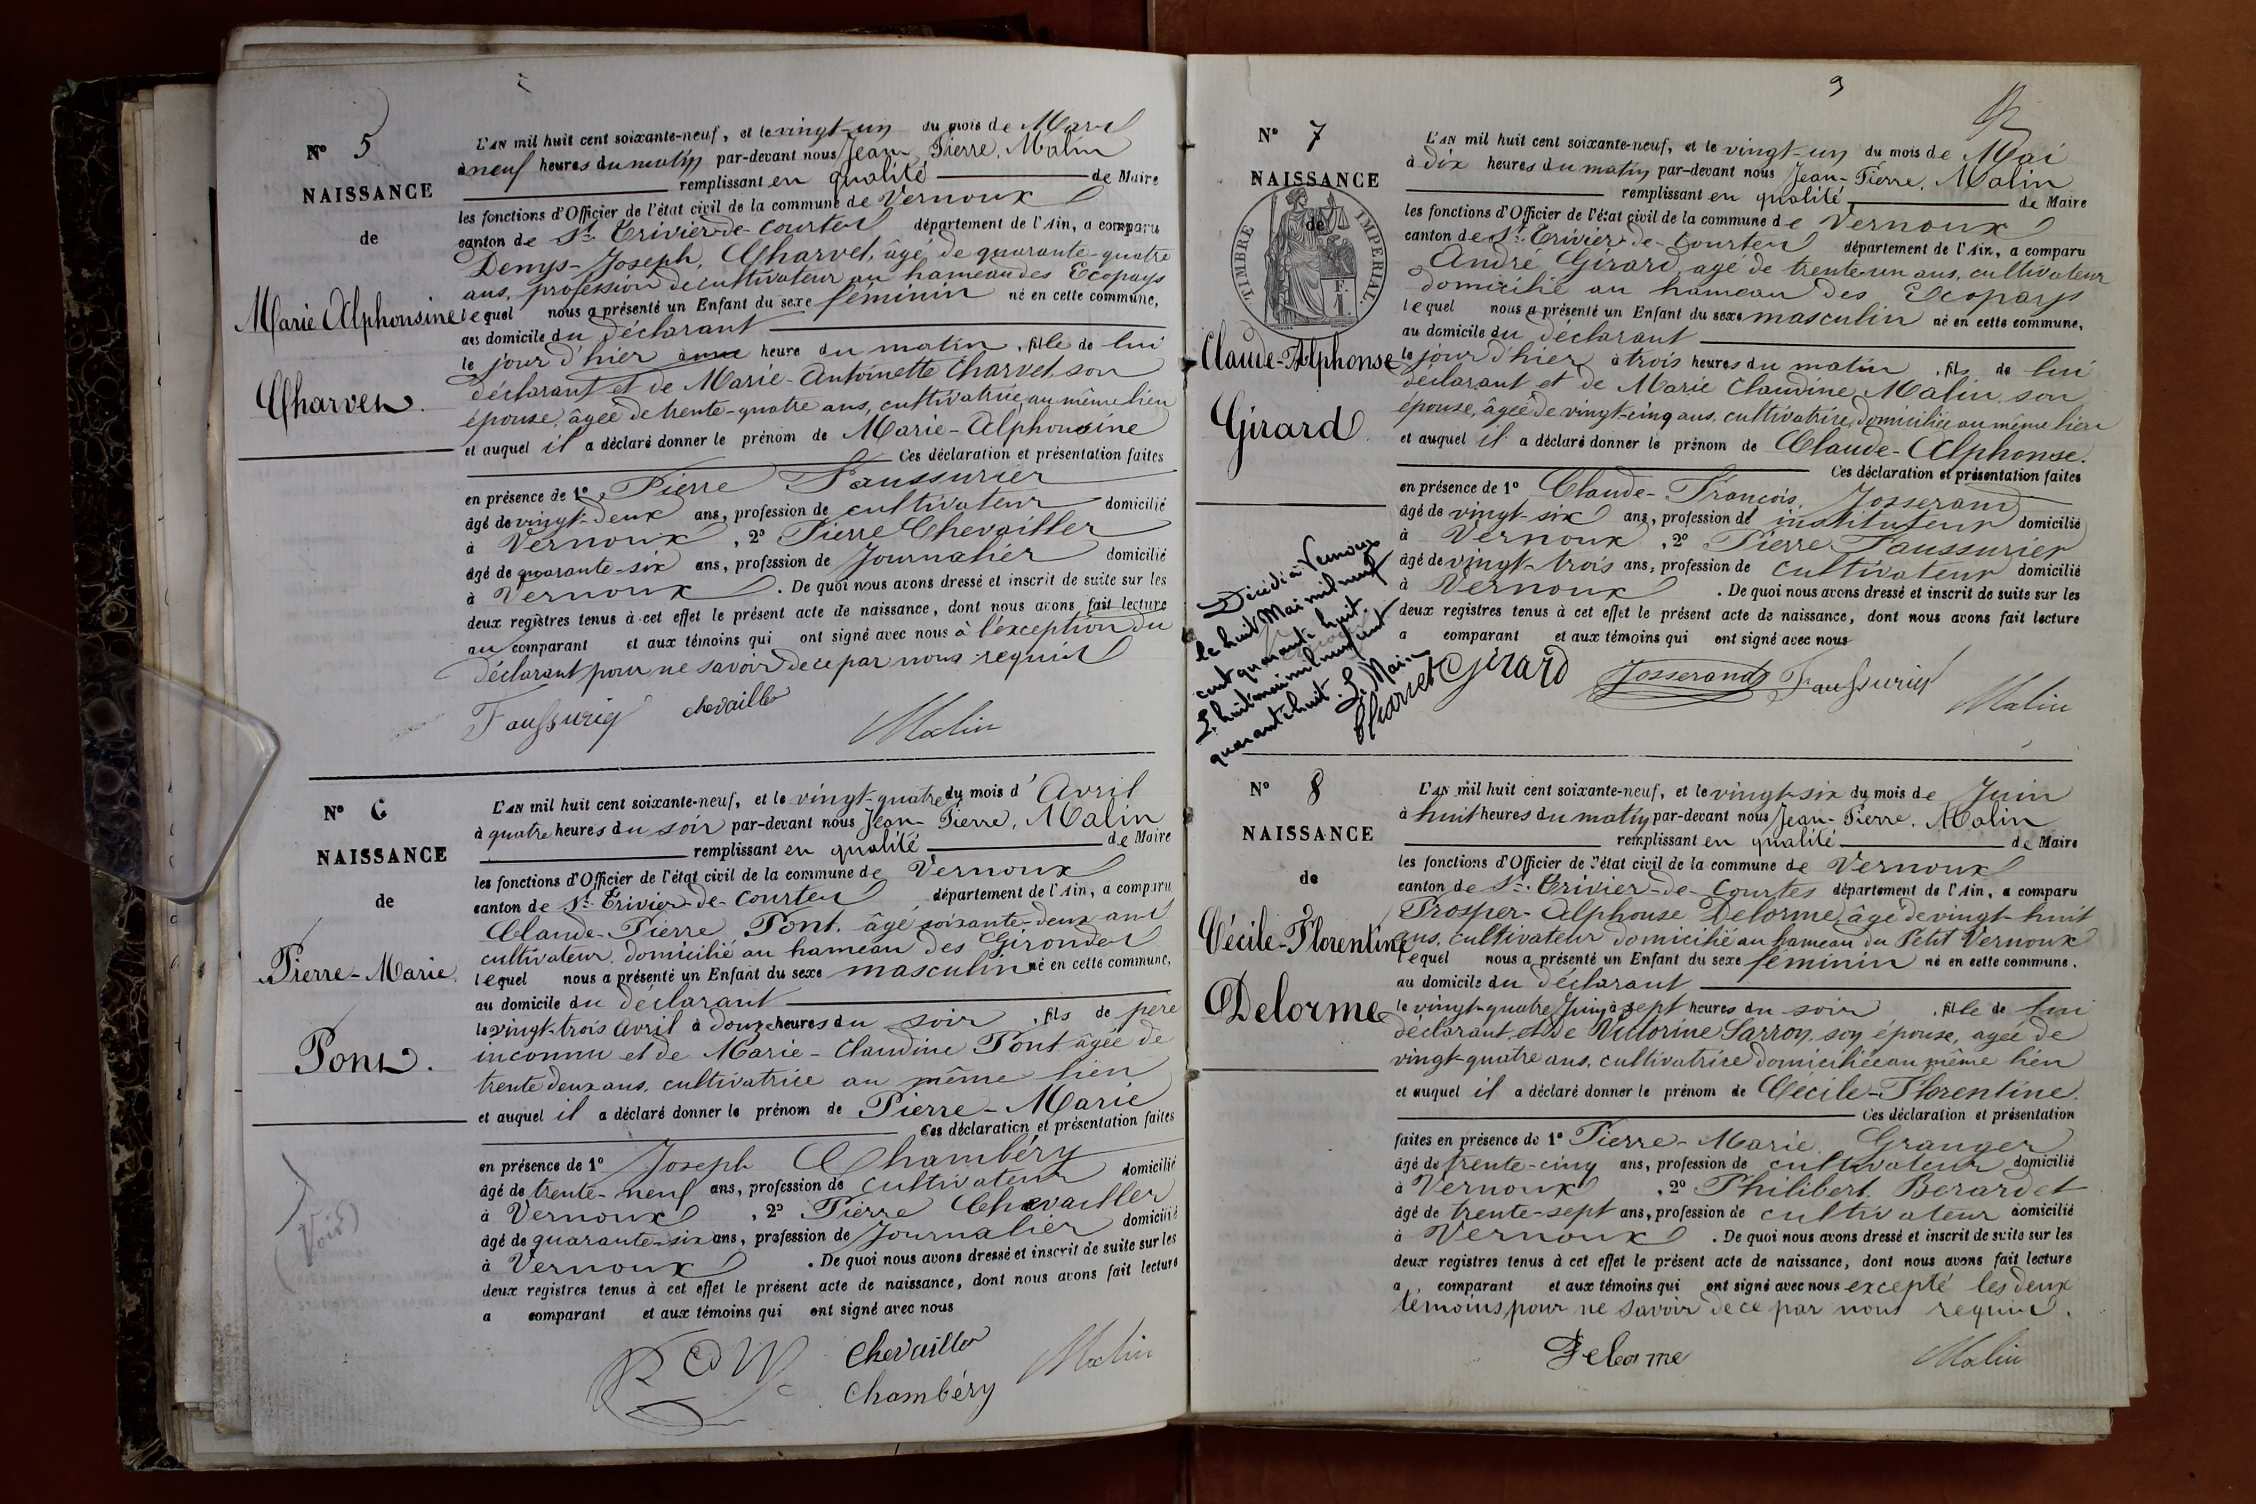 Nº 5
NAISSANCE
de
Marie Alphonsine
Charvet.
L'AN mil huit cent soixante-neuf, et le vingt-un du mois de Mars
à neuf heures du matin par-devant nous Jean-Pierre, Malin
remplissant en qualité de Maire
les fonctions d'Officier de l'état civil de la commune de Vernoux
canton de St. Trivier-de-Courtes département de l'Ain, a comparu
Denys-Joseph, Charvet, âgé de quarante-quatre
ans, profession de cultivateur au hameau des Ecopays
lequel nous a présenté un Enfant du sexe féminin né en cette commune,
au domicile du déclarant
le jour d'hier à une heure du matin, fille de lui
déclarant et de Marie-Antoinette Charvet, son
épouse, âgée de trente-quatre ans, cultivatrice au même lieu
et auquel il a déclaré donner le prénom de Marie-Alphonsine
Ces déclaration et présentation faites
en présence de 1º Pierre Faussurier
âgé de vingt-deux ans, profession de cultivateur domicilié
à Vernoux, 2º Pierre Chevailler
âgé de quarante-six ans, profession de Journalier domicilié
à Vernoux. De quoi nous avons dressé et inscrit de suite sur les
deux registres tenus à cet effet le présent acte de naissance, dont nous avons fait lecture
au comparant et aux témoins qui ont signé avec nous à l'exception du
déclarant pour ne savoir de ce par nous requis
Faussurier chevailler
Malin
Nº 6
NAISSANCE
de
Pierre-Marie
Pont.
(Voir)
L'AN mil huit cent soixante-neuf, et le vingt-quatre du mois d'Avril
à quatre heures du soir par-devant nous Jean-Pierre, Malin
remplissant en qualité de Maire
les fonctions d'Officier de l'état civil de la commune de Vernoux
canton de St. Trivier-de-Courtes département de l'Ain, a comparu
Claude-Pierre Pont. âgé soixante-deux ans
cultivateur, domicilié au hameau des Girondes
lequel nous a présenté un Enfant du sexe masculin né en cette commune,
au domicile du déclarant
le vingt-trois avril à douze heures du soir, fils de père
inconnu et de Marie-Claudine Pont âgée de
trente deux ans, cultivatrice au même lieu
et auquel il a déclaré donner le prénom de Pierre-Marie
Ces déclaration et présentation faites
en présence de 1º Joseph Chambéry
âgé de trente-neuf ans, profession de cultivateur domicilié
à Vernoux, 2º Pierre Chevailler
âgé de quarante-six ans, profession de Journalier domicilié
à Vernoux. De quoi nous avons dressé et inscrit de suite sur les
deux registres tenus à cet effet le présent acte de naissance, dont nous avons fait lecture
a comparant et aux témoins qui ont signé avec nous
chevailler
Chambéry
Malin
9
Nº 7
NAISSANCE
de
TIMBRE IMPERIAL
Claude-Alphonse
Girard
Décédé à Vernoux
le huit Mai mil neuf
cent quarante huit.
Le huit mai mil neuf cent
quarante huit. Le Maire
Charvet
L'AN mil huit cent soixante-neuf, et le vingt-un du mois de Mai
à dix heures du matin par-devant nous Jean-Pierre, Malin
remplissant en qualité de Maire
les fonctions d'Officier de l'état civil de la commune de Vernoux
canton de St. Trivier-de-Courtes département de l'Ain, a comparu
André Girard, agé de trente-un ans, cultivateur
domicilié au hameau des Ecopays
lequel nous a présenté un Enfant du sexe masculin né en cette commune,
au domicile du déclarant
le jour d'hier à trois heures du matin, fils de lui
déclarant et de Marie Claudine Malin, son
épouse, âgée de vingt-cinq ans, cultivatrice, domiciliée au même lieu
et auquel il a déclaré donner le prénom de Claude-Alphonse.
Ces déclaration et présentation faites
en présence de 1º Claude-François, Josserand
âgé de vingt-six ans, profession de instituteur domicilié
à Vernoux, 2º Pierre Faussurier
âgé de vingt-trois ans, profession de cultivateur domicilié
à Vernoux. De quoi nous avons dressé et inscrit de suite sur les
deux registres tenus à cet effet le présent acte de naissance, dont nous avons fait lecture
a comparant et aux témoins qui ont signé avec nous
Girard Josserand Faussurier
Malin
Nº 8
NAISSANCE
de
Cécile-Florentine
Delorme
L'AN mil huit cent soixante-neuf, et le vingt-six du mois de Juin
à huit heures du matin par-devant nous Jean-Pierre, Malin
remplissant en qualité de Maire
les fonctions d'Officier de l'état civil de la commune de Vernoux
canton de St. Trivier-de-Courtes département de l'Ain, a comparu
Prosper-Alphonse Delorme, âgé de vingt-huit
ans, cultivateur domicilié au hameau du Petit Vernoux
lequel nous a présenté un Enfant du sexe féminin né en cette commune.
au domicile du déclarant
le vingt-quatre Juin à sept heures du soir, fille de lui
déclarant, et de Victorine Sarron, son épouse, agée de
vingt-quatre ans, cultivatrice domiciliée au même lieu
et auquel il a déclaré donner le prénom de Cécile-Florentine.
Ces déclaration et présentation
faites en présence de 1º Pierre-Marie Granger
âgé de trente-cinq ans, profession de cultivateur domicilié
à Vernoux, 2º Philibert Berardet
âgé de trente-sept ans, profession de cultivateur domicilié
à Vernoux. De quoi nous avons dressé et inscrit de suite sur les
deux registres tenus à cet effet le présent acte de naissance, dont nous avons fait lecture
a comparant et aux témoins qui ont signé avec nous excepté les deux
témoins pour ne savoir de ce par nous requis.
Delorme
Malin